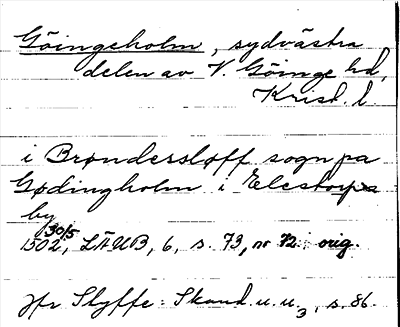 Göingeholm, sydvästra
delen av V. Göinge hd,
Krist. l.
i Brøndersløff sogn pa
Gødingholm i Elestorpa
by
30/5
1502, LÄUB, 6, s. 73, nr 72. orig.
Jfr Styffe: Skand. u. u.3, s. 86.